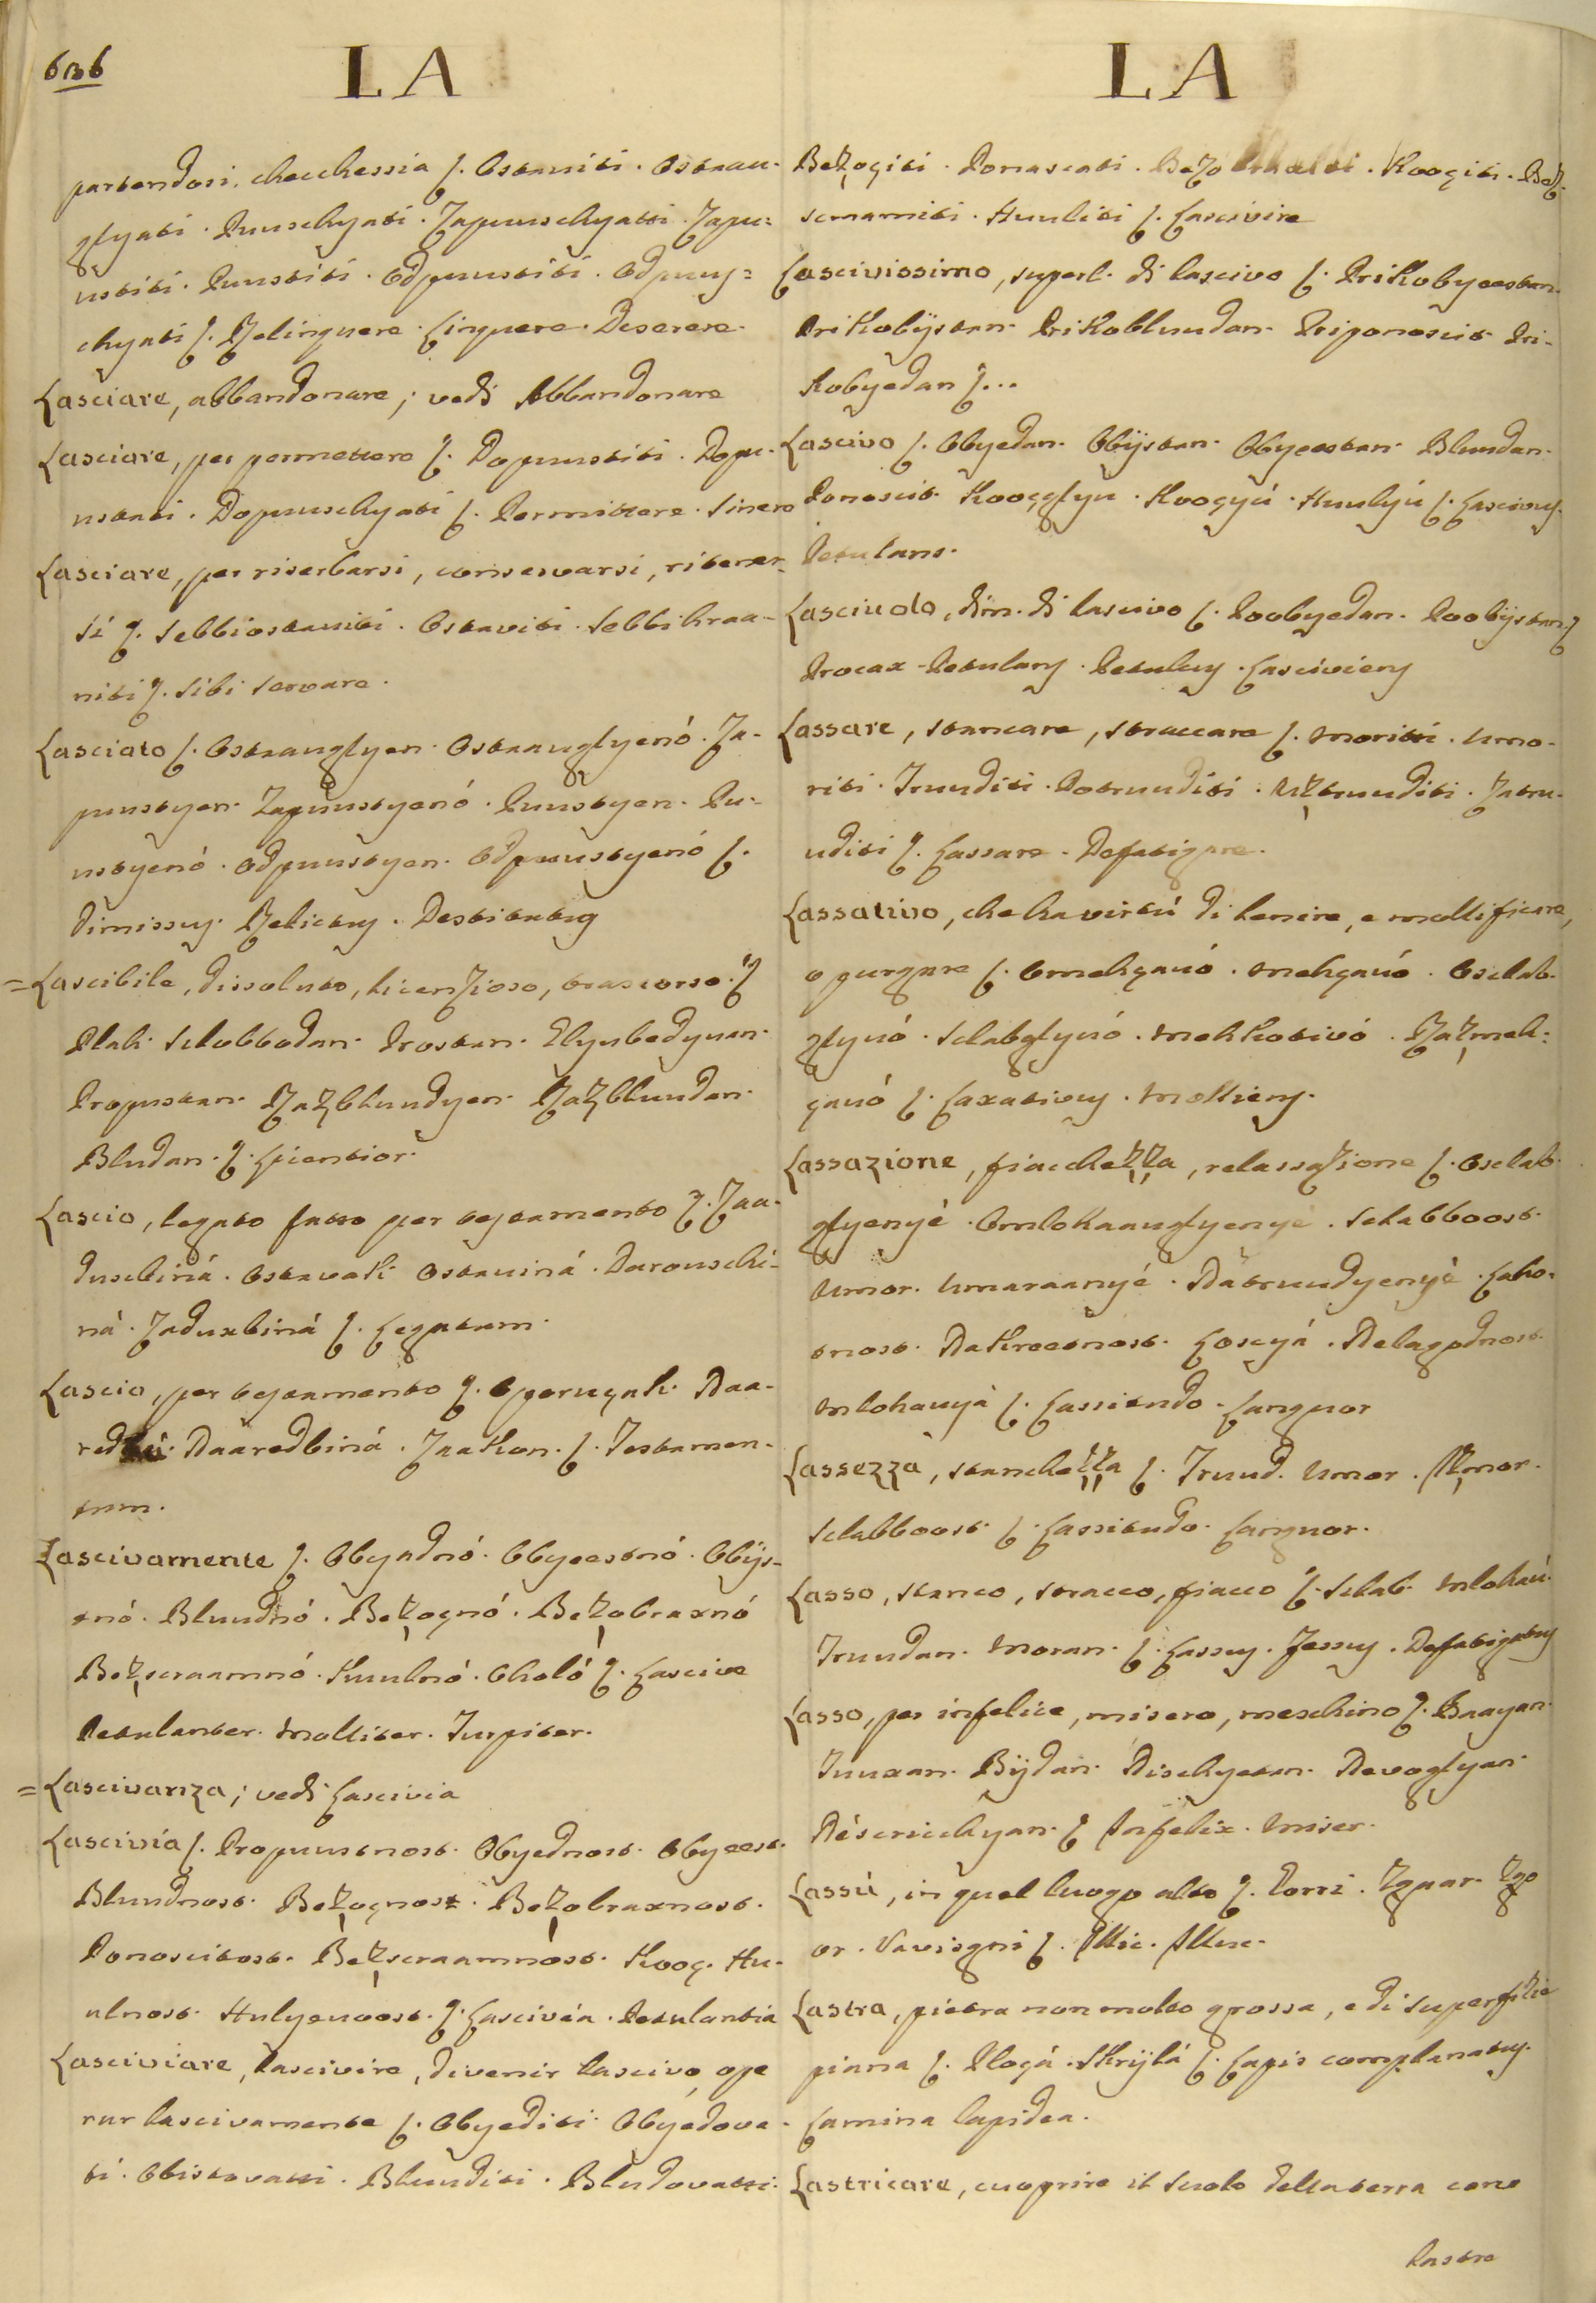 636
LA
partendosi, checchessia ſ. Ostaviti. Ostaau-
glyati. Puuschyati. Zapuuschyatti. Zapu=
ustiti. Puustiti. Odpuustiti. Odpuus=
chyati ſ. Relinquere. Linquere. Deserere.
Lasciare, abbandonare; vedi Abbandonare
Lasciare, per permettere ſ. Dopuustiti. Dopu-
ustati. Dopuuschyati ſ. Permittere. Sinere
Lasciare, per riserbarsi, conservarsi, ritener-
si ſ. Sebbiostaviti. Ostaviti. Sebbihraa-
niti ſ. Sibi servare.
Lasciato ſ. Ostaauglyen. Ostaauglyenó. Za-
puustyen. Zapuustyenó. Puustyen. Pu-
ustyenó. Odpuustyen. Odpuustyenó ſ.
Dimissus. Relictus. Destitutus
= Lascibile, dissoluto, licenzioso, trascorso ſ.
Plah. Slobbodan. Prostan. Elyubedyuan.
Propustan. Razbluudyen. Razbluudan.
Bludan. ſ. Licentior.
Lascio, legato fatto per testamento ſ. Zaa-
dusbiná. Ostavak. Ostaviná. Darouschi-
ná. Zaduxbiná ſ. Legatum.
Lascio, per testamento ſ. Oporuçak. Naa-
red Naaredbiná. Zaakon. ſ. Testamen-
tum.
Lascivamente ſ. Obyednó. Obyeestnó. Obijs-
tnó. Bluudnó. Bezoçnó. Bezobraxnó
Bezsraamnó. Huulnó. Oholó ſ. Lascive
Petulanter. Molliter. Turpiter.
= Lascivanza; vedi Lascivia
Lascivia ſ. Propuustnost. Obyednost. Obyeest.
Bluudnost. Bezoçnost. Bezobraxnost.
Ponositost. Bezsraamnóst. Koog. Hu-
ulnost. Hulyenoost. ſ. Lascivia. Petulantia
Lasciviare, lascivire, divenir lascivo, ope
rar lascivamente ſ. Obyediti. Obyedova-
ti. Obistovatti. Bluuditi. Bludovatti.
LA
Bezoçiti. Ponascati. Koogiti. Bez-
sramniti. Huuliti ſ. Lascivire
Lascivissimo, superl. di lascivo ſ. Prikobyeestan.
Prikobijstan. Prikobluudan. Priponoscit. Pri-
kobyedan ſ...
Lascivo ſ. Obyedan. Obijstan. Obyeestan. Bluudan.
Ponoscit. Kooçglyu. Koogyú. Huulyú ſ. Lascivus.
Petulans.
Lasciuolo, dim. di lascivo ſ. Poobyedan. Poobijstan ſ.
Procax. Petulans. Petulus. Lasciviens
Lassare, stancare, straccare ſ. Moritti. Umo-
riti. Truuditi. Potruuditi. Uztruuditi. Zatru-
uditi ſ. Lassare. Defatigare.
Lassativo, che ha virtú di lenire, e mollificare,
o purgare ſ. Omehçauó. Mehçauó. Oslab-
glyuó. Slabglyuó. Mekkotivó. Razmek-
çauó ſ. Laxativus. Molliens.
Lassazione, fiacchezza, relassazione ſ. Oslab-
glyenyé. Omlohaauglyenyé. Slabboost.
Umor. Umaraanyé. Natruudyenyé. Laho-
tnost. Nakroetnost. Loscyá. Nelagodnost.
Mlohauyá ſ. Lassitudo. Languor
Lassezza, stanchezza ſ. Truud. Umor. Izmor.
Slabboost. ſ. Lassitudo. Languor.
Lasso, stanco, stracco, fiacco ſ. Slab. Mlohaú.
Truudan. Moran. ſ. Lassus. Fessus. Defatigatus
Lasso, per infelice, misero, meschino ſ. Baayan.
Tuuxan. Bijdan. Nischyetan. Nevoglyan.
Nésriechyan. ſ. Infelix. Miser.
Lassú, in quel luogo alto ſ. Gorri. Zguar. Zgo
or. Vavisgni ſ. Illic. Illuc.
Lastra, pietra non molto grossa, e di superfizie
piana ſ. Ploçá. Skrijlá ſ. Lapis complanatus.
Lamina lapidea.
Lastricare, cuoprire il suolo della terra con
lastre